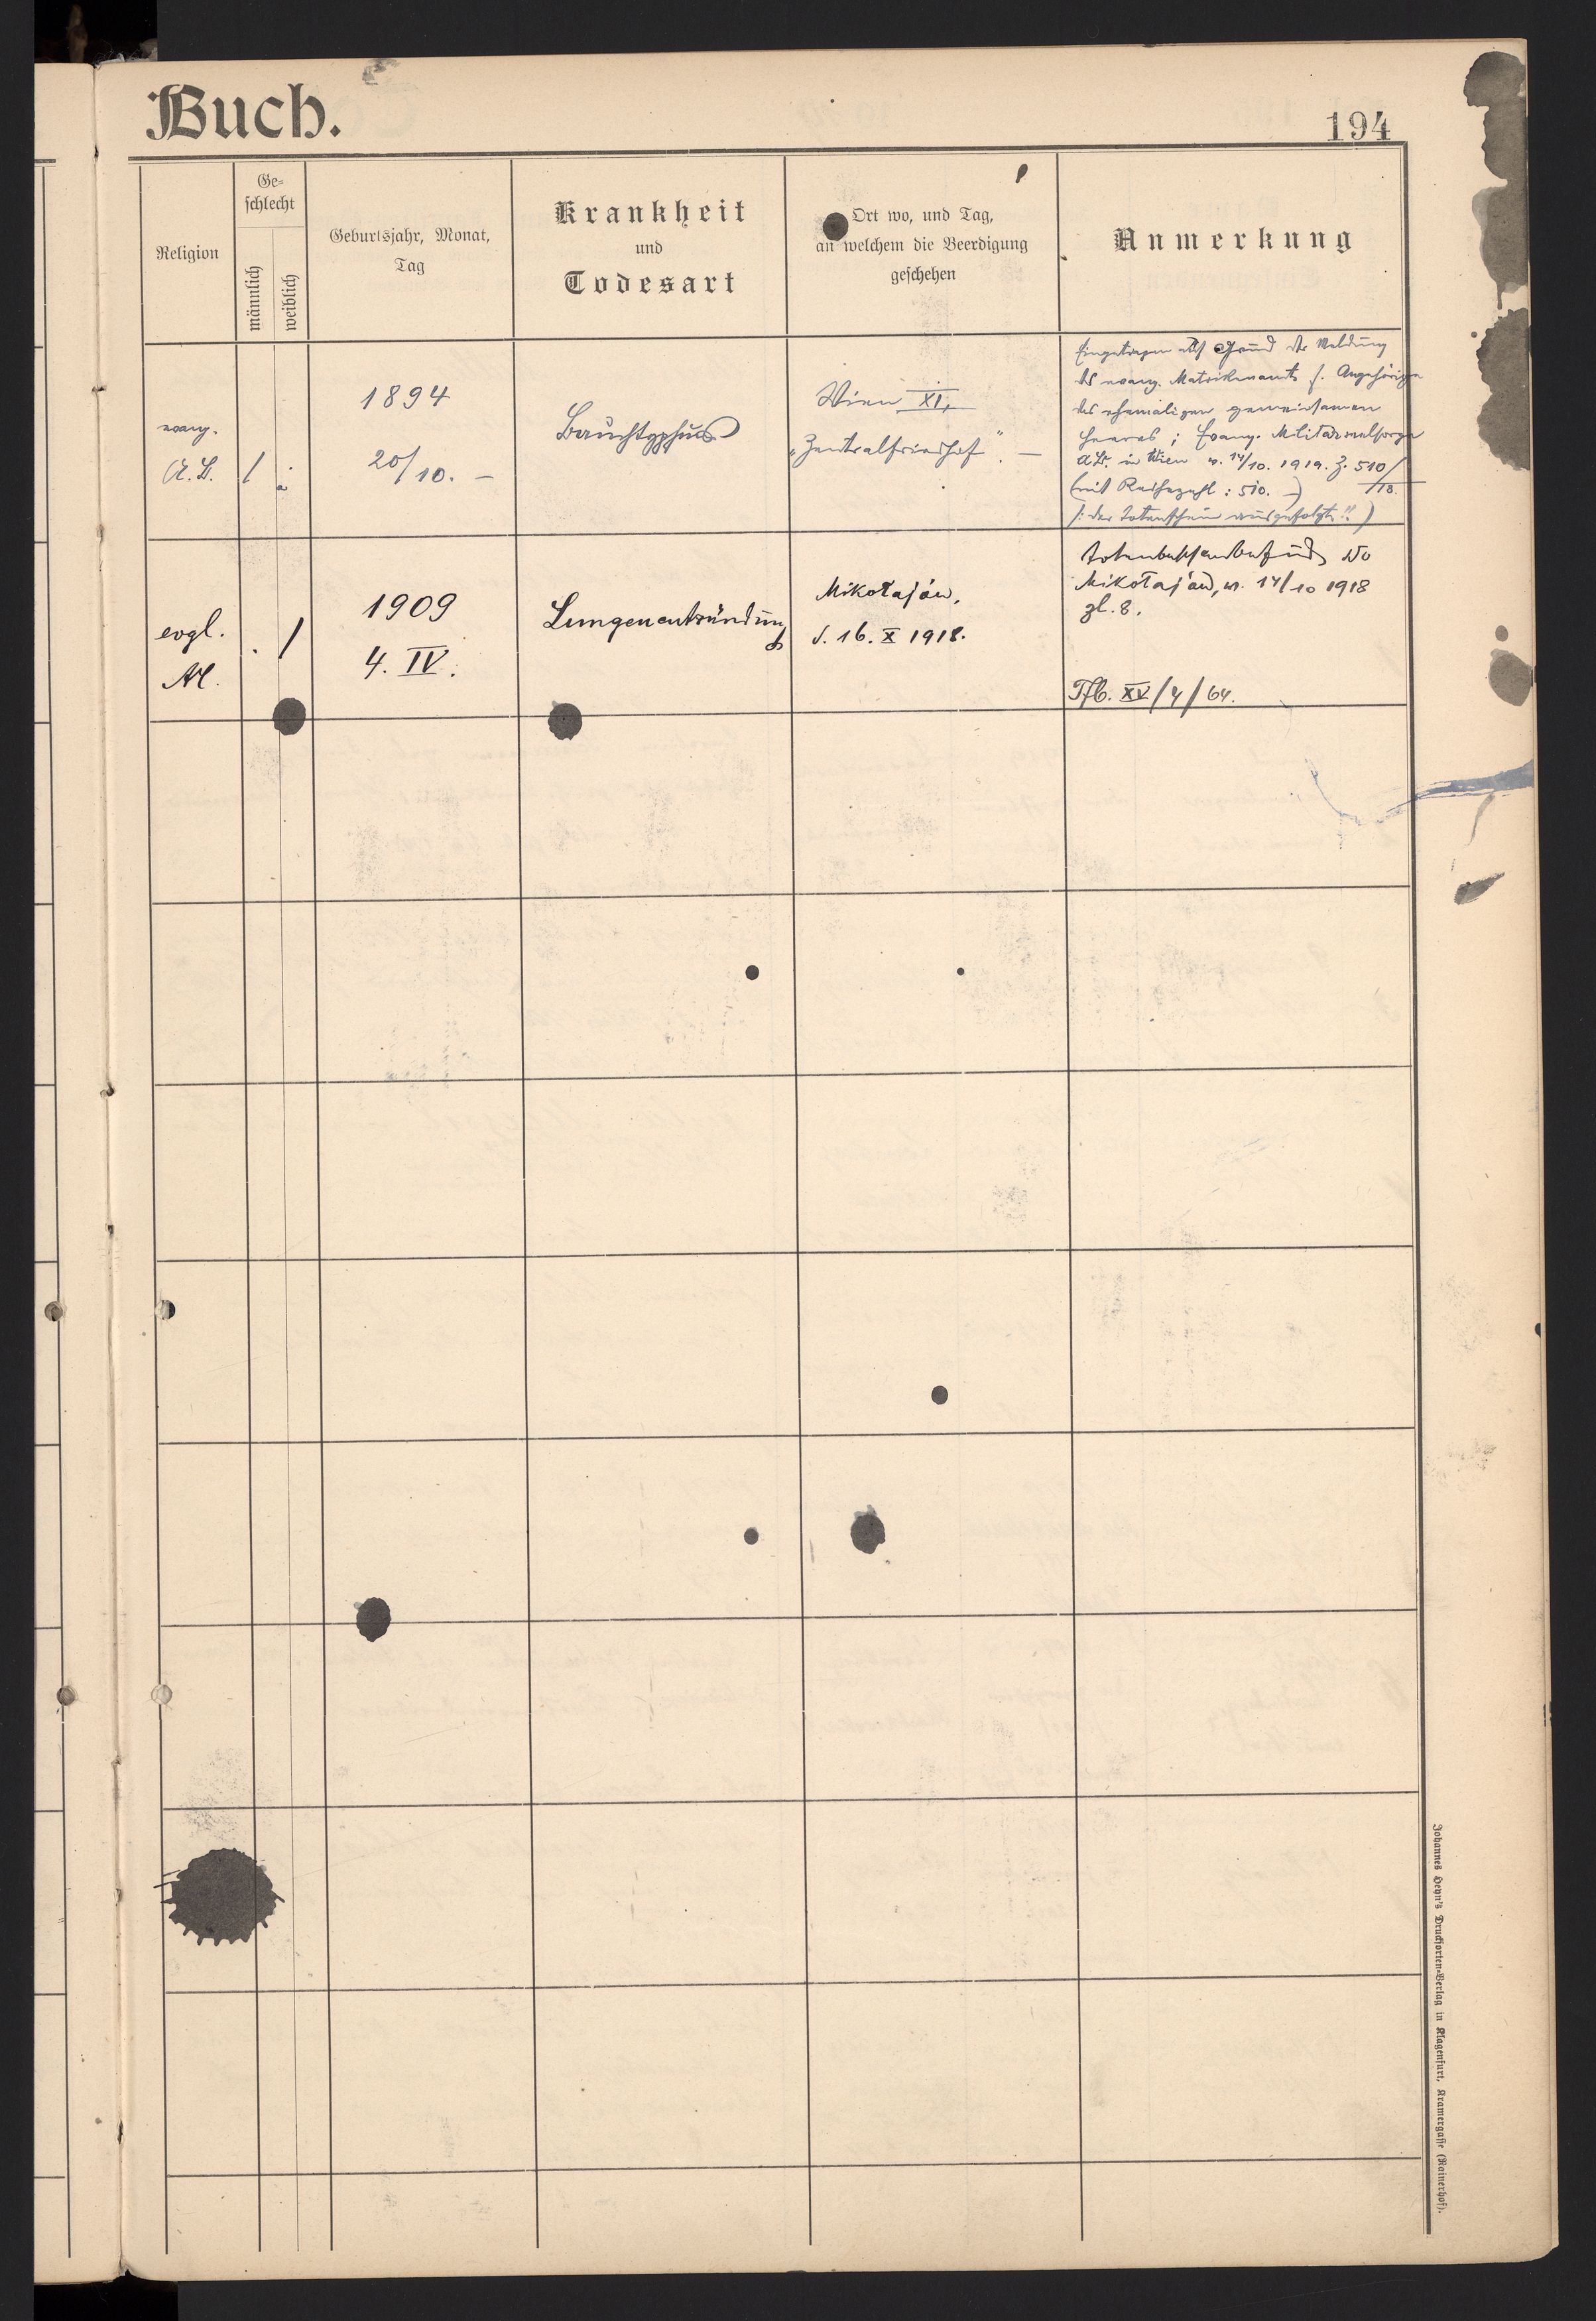 Buch.
194
Religion
Ge-
schlecht
männlich
weiblich
Geburtsjahr, Monat,
Tag
Krankheit
und
Todesart
Ort wo, und Tag,
an welchem die Beerdigung
geschehen
Anmerkung
evang.
A.B.
/
1894
20/10. –
Bauchtyphus
Wien XI,
„Zentralfriedhof“. –
Eingetragen auf Grund der Meldung
des evang. Matrikenamts f. Angehörige
des ehemaligen gemeinsamen
Heeres; Evang. Militärseelsorge
A.B. in Wien v. 14/10. 1919. Z. 510/18.
(mit Reihezahl: 510. –)
(: der Totenschein ausgefolgt!! )
evgl.
/
1909
4. IV.
Lungenentzündung
Mikołajów,
d. 16. X 1918.
Totenbeschaubefund
Mikołajów, v. 14/10 1918
zl. 8.
Tfb. XV/4/64.
Johannes Heyn's Drucksorten-Verlag in Klagenfurt, Kramergasse (Rainerhof).